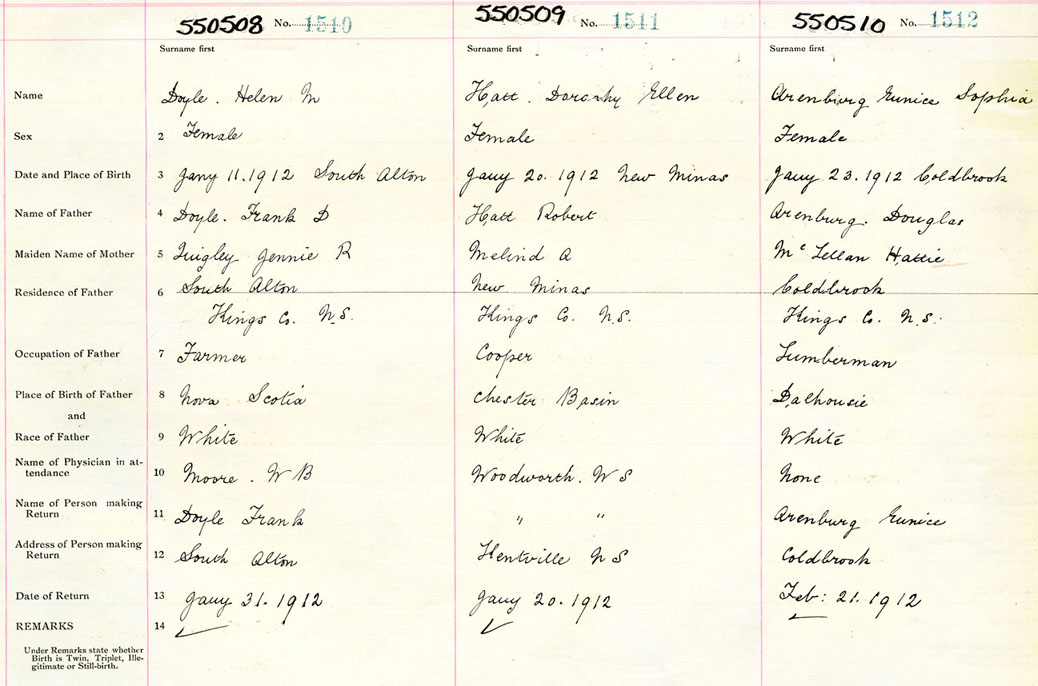 550508 No. 1510 550509 No. 1511 550510 No. 1512
Surname first Surname first Surname first
Name Doyle. Helen M Hatt. Dorothy Ellen Arenburg Eunice Sophia
Sex 2 Female Female Female
Date and Place of Birth 3 Jany 11. 1912 South Alton Jany 20. 1912 New Minas Jany 23. 1912 Coldbrook
Name of Father 4 Doyle. Frank D Hatt Robert Arenburg. Douglas
Maiden Name of Mother 5 Quigley Jennie R Melind A McLellan Hattie
Residence of Father 6 South Alton New Minas Coldbrook
Kings Co. N.S. Kings Co. N.S. Kings Co. N.S.
Occupation of Father 7 Farmer Cooper Lumberman
Place of Birth of Father 8 Nova Scotia Chester Basin Dalhousie
and
Race of Father 9 White White White
Name of Physician in at-
tendance 10 Moore. W B Woodworth. W S None
Name of Person making
Return 11 Doyle Frank " " Arenburg Eunice
Address of Person making
Return 12 South Alton Kentville N S Coldbrook
Date of Return 13 Jany 31. 1912 Jany 20. 1912 Feb: 21. 1912
REMARKS 14
Under Remarks state whether
Birth is Twin, Triplet, Ille-
gitimate or Still-birth.